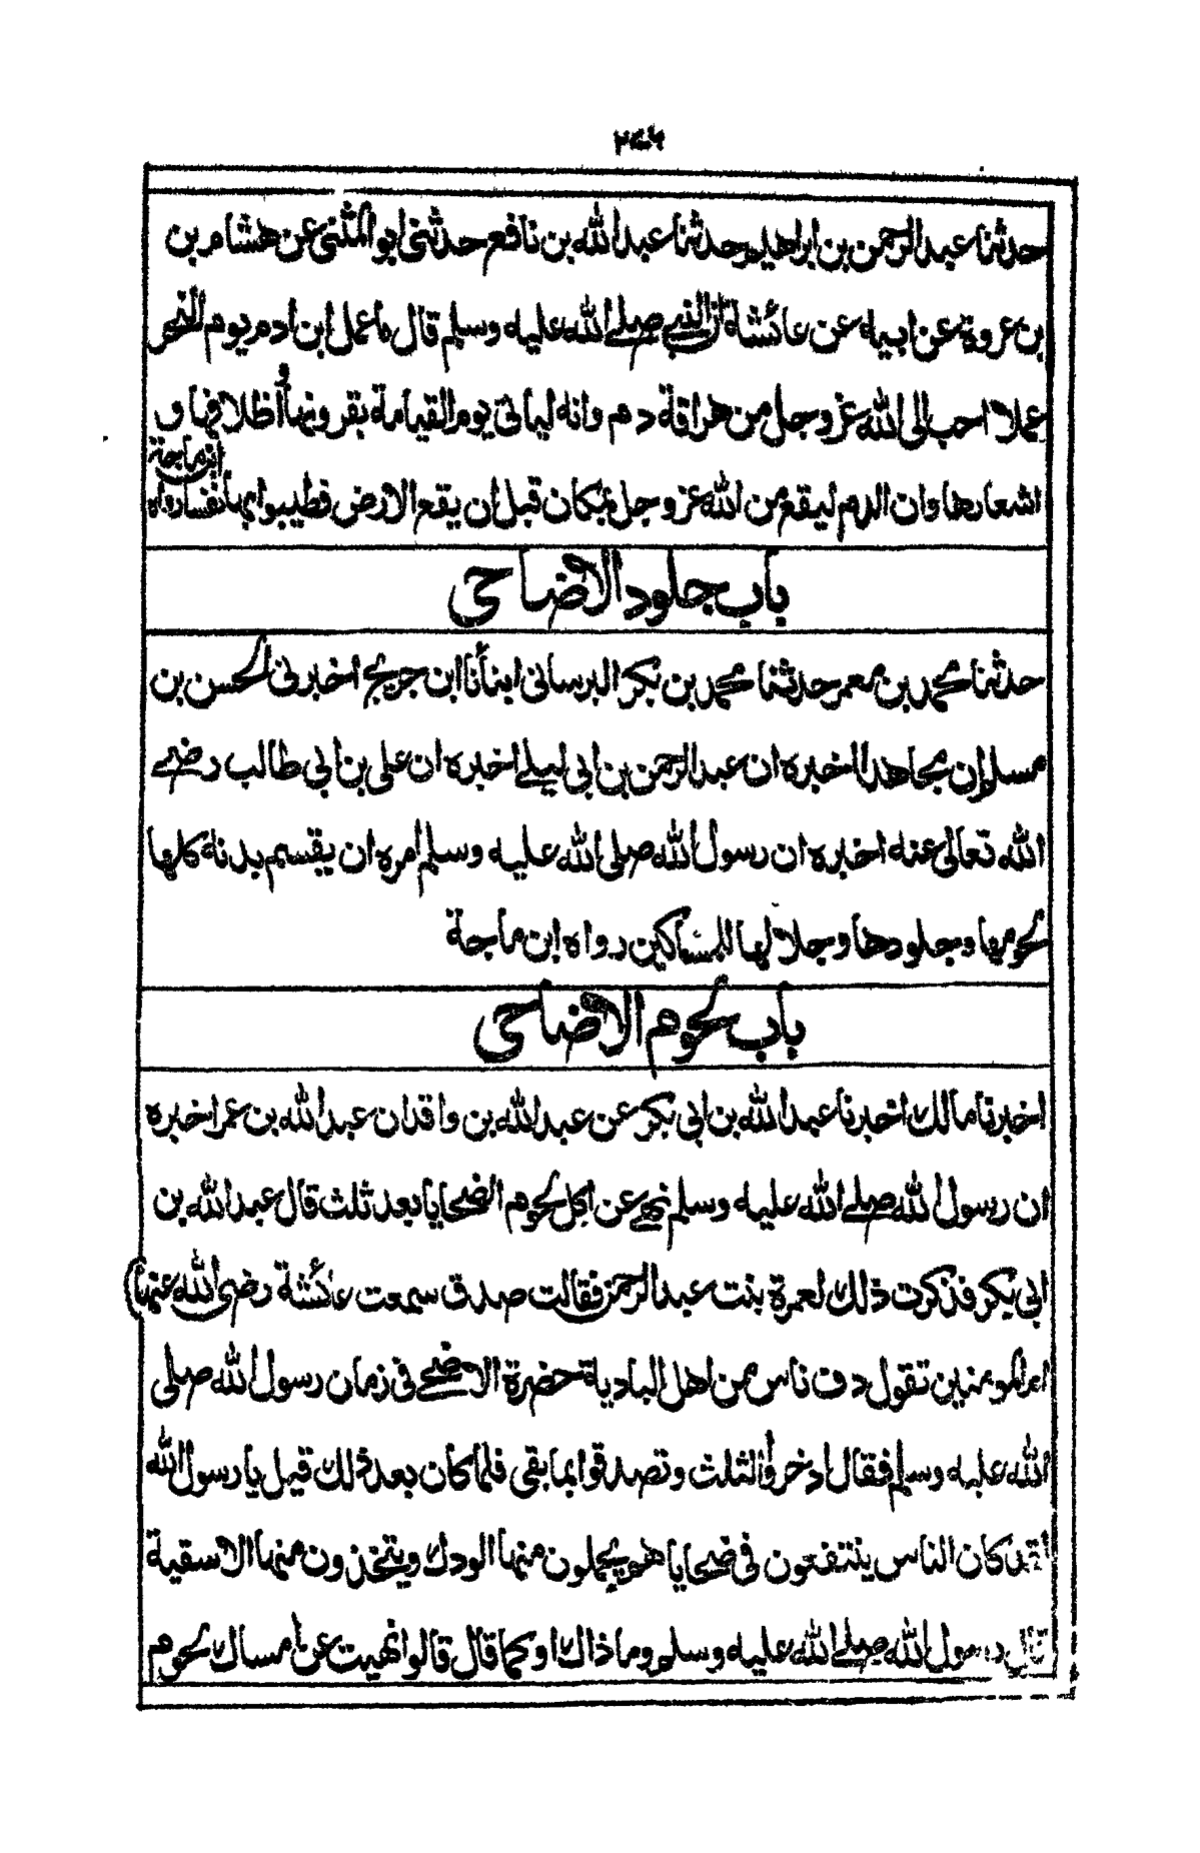 ٢٤٦
حدثنا عبدالرحمن بن ابراهيم حدثنا عبدالله بن نافع حدثنى ابو المثنى عن هشام بن
بن عروة عن ابيه عن عائشة ان النبي صلے الله عليه وسلم قال ما عمل ابن ادم يوم النحر
عملا احب الى الله عز وجل من هراقة دم وانه لياتى يوم القيامة بقرونها و اظلافها و
اشعارها وان الدم ليقع من الله عز وجل بمكان قبل ان يقع الارض فطيبوا بها نفسا رواه ابن ماجة
باب جلود الاضاحى
حدثنا محمد بن معمر حدثنا محمد بن بكر البرسانى انبأنا ابن جريج اخبرنى الحسن بن
مسلم ان مجاهدا اخبره ان عبدالرحمن بن ابى ليلے اخبره ان على بن ابى طالب رضے
الله تعالى عنه اخبره ان رسول الله صلى الله عليه وسلم امره ان يقسم بدنه كلها
لحومها وجلودها وجلالها للمساكين رواه ابن ماجة
باب لحوم الاضاحى
اخبرنا مالك اخبرنا عبدالله بن ابى بكر عن عبدالله بن واقد ان عبدالله بن عمر اخبره
ان رسول الله صلے الله عليه وسلم نهے عن اكل لحوم الضحايا بعد ثلث قال عبدالله بن
ابى بكر فذكرت ذلك لعمرة بنت عبدالرحمن فقالت صدق سمعت عائشة رضى الله عنها)
ام المومنين تقول دف ناس من اهل البادية حضرة الاضحے فى زمان رسول الله صلى
الله عليه وسلم فقال ادخروا الثلث وتصدقوا بما بقى فلما كان بعد ذلك قيل يا رسول الله
لقد كان الناس ينتفعون فى ضحاياهم يجملون منها الودك ويتخذون منها الاسقية
قال رسول الله صلے الله عليه وسلم وما ذاك او كما قال قالوا نهيت عن امساك لحوم